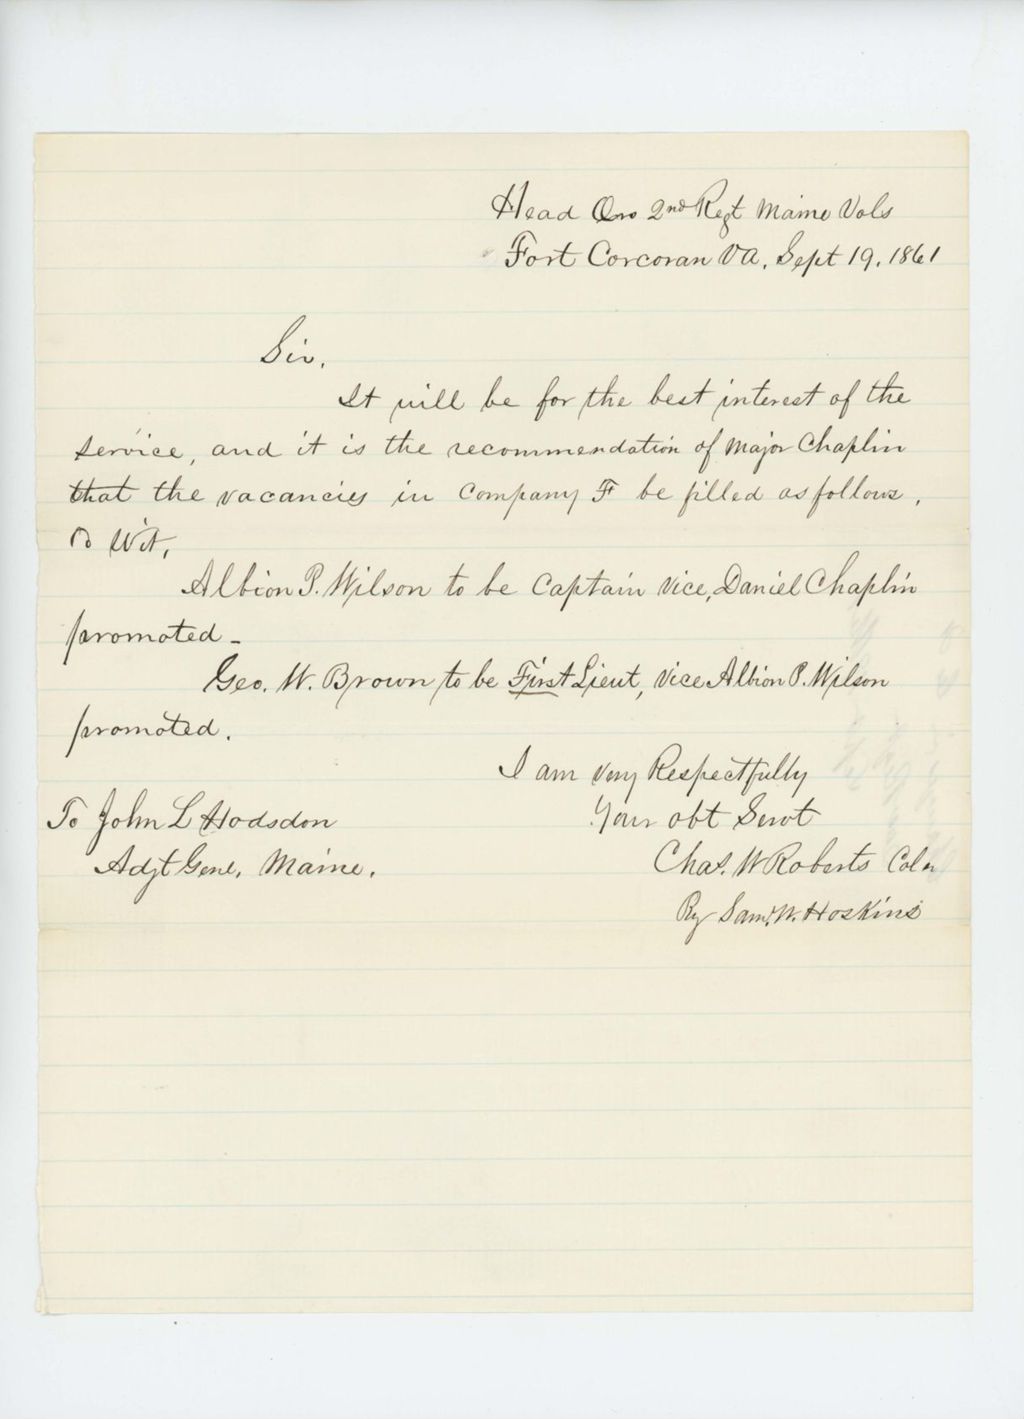 Head Qrs 2nd Regt Maine Vols
Fort Corcoran VA, Sept 19, 1861
Sir,
It will be for the best interest of the
service, and it is the recommendation of Major Chaplin
that the vacancies in Company F be filled as follows,
to Wit,
Albion P. Wilson to be Captain Vice, Daniel Chaplin
promoted -
Geo. W. Brown to be First Lieut, Vice Albion P. Wilson
promoted.
I am Very Respectfully
Your obt Servt
Chas. W Roberts Col
By Saml. W. Hoskins
To John L Hodsdon
Adjt Genl, Maine.